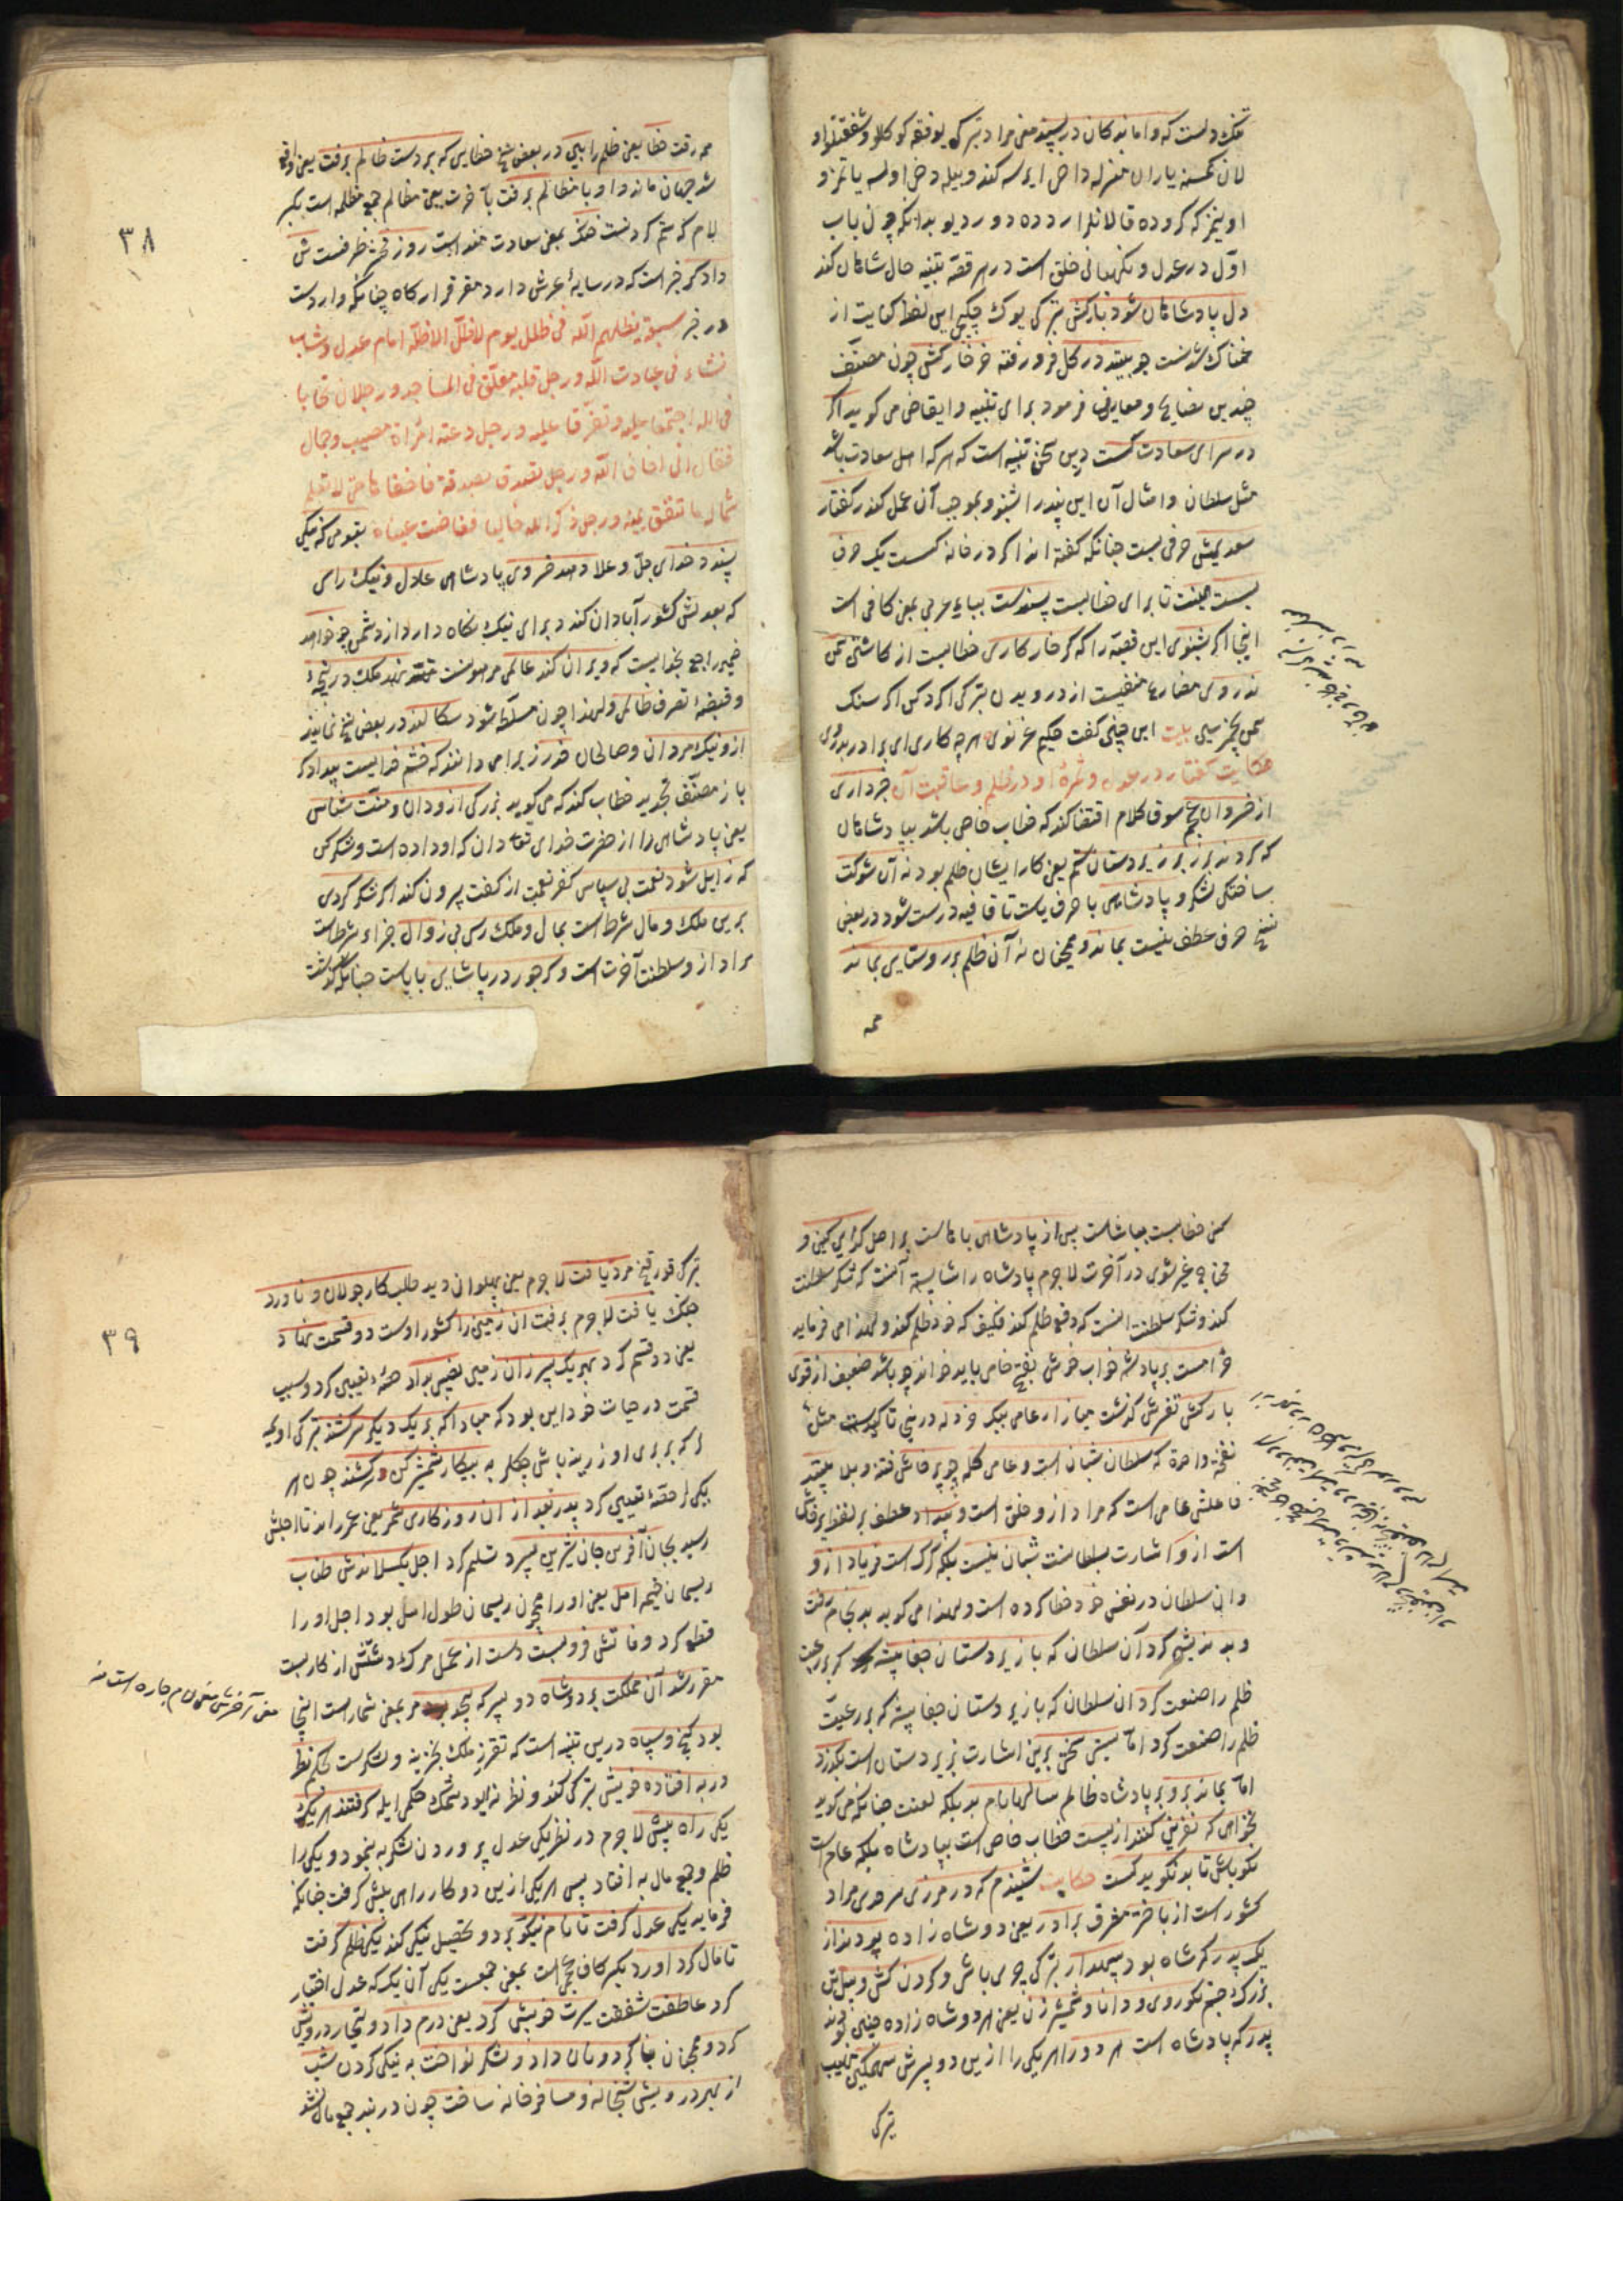 تنک دلست که واماندکان در پسند معنی مراد ترکی یوفقه کوکللو و شفقتلو
لان کمسنه یاران منزله داخل ایرسه کندو بیله دخی اولسه یاتمز و
اویمز که کروده قالانلرا رددە دورر دیو بدانکه چون باب
اول در عدل و نکهبانی خلق است در هر قصه تنبیه حال شاهان کند
دل پادشاهان شود بارکش ترکی یوک چکیجی این لفظ کنایت از
غمناک شدنست چو بیند در کل فرورفته خر خارکش چون مصنف
چندین نصایح و معارف فرمود برای تنبیه و ایقاض می کوید اکر
در سرای سعادت کست درین سخن تنبیه است که هر که اهل سعادت باشد
مثل سلطان و امثال آن این پندرا شنود و بموجب آن عمل کند ز کفتار
سعدیش حرفی بست چنانکه کفته اند اکر در خانه کست یک حرف
بست همینت تا برای خطابست پسندست بباء عربی بمعنی کافی است
اینجا اکر بشنوی این قصه را که کر خار کاری خطابست از کاشتن سمن
ندروی مضارع منفیست از درویدن ترکی اکر دکن اکر سنک
سمن بچمزسین بیت این چنین کفت حکیم غزنوی هر چه کاری ای برادر بدروی
حکایت کفتار در عدل و ثمرهٔ او و در ظلم و عاقبت آن خبر داری
از خسروان عجم سوق کلام اقتضا کند که خطاب خاص باشد ببادشاهان
که کردند بر زیردستان ستم یعنی کار ایشان ظلم بود نه آن شوکت
ساختکی لشکر و پادشاهی با حرف یاست تا قافیه درست شود در بعضی
نسخ حرف عطف نیست بماند و همچنان نه آن ظلم بر روستایی بماند
همه
همه رفت خطا یعنی ظلم را ببین در بعض نسخ خطایی که بر دست ظالم برفت یعنی واقع
شد جهان ماند و او با مظالم برفت بآخرت یعنی مظالم جمع مظلمه است بکسر
لام که ستم کردنست خنک بمعنی سعادت مندست روز محشر ظرفست تن
دادکر خبر است که در سایهٔ عرش دارد مقر قرارکاه چنانکه وارد است
در خبر سبعة یظلهم الله فی ظلل یوم لا ظل الا ظله امام عدل و شاب
نشاء فی عبادت الله و رجل قلبه معلق فی المساجد و رجلان تحابا
فی الله اجتمعا علیه و تفرقا علیه و رجل دعته امراة منصب و جمال
فقال انی اخاف الله و رجل تصدق بصدقة فاخفاها حتی لا تعلم
شماله ما تنفق یمینه و رجل ذکر الله خالیا ففاضت عیناه بقومی که نیکی
پسندد خدای جل و علا دهد خسروی پادشاهی عادل و نیک رای
که بعدلش کشور آبادان کند و برای نیک نکاه دارد از دشمن چو خواهد
ضمیر راجع بخدایست که ویران کند عالمی مرهونست نهد ملک در پنجهٔ
و قبضهٔ تصرف ظالمی ولهذا چون مسلط شود سکالند در بعض نسخ نمایند
ازو نیک مردان و صالحان حذر زیرا می دانند که خشم خدایست بیدادکر
باز مصنف تجدید خطاب کند که می کوید بزرکی ازو دان و منت شناس
یعنی پادشاهی را از حضرت خدای تعالی دان که او داده است و شکر کن
که زایل شود نعمت بی سپاس کفر نعمت از کفت بیرون کند اکر شکر کردی
برین ملک و مال شرط است بمال و ملک رسی بی زوال جزاء شرط است
مراد از و سلطنت آخرت است و کر جور در پادشایی با یاست چنانکه کذشت
٣٨
کنی خطابست بپادشاست پس از پادشاهی با هاست بر اصل کدایی کنی و
محتاج غیر شوی در آخرت لا جرم پادشاه را شایسته آنست که شکر سلطنت
کند و شکر سلطنت آنست که دفع ظلم کند فکیف که خود ظلم کند ولهذا می فرماید
حرامست بر پادشه خواب خوش بفتح خا می باید خواند چو باشد ضعیف از قوی
بارکش تفرش کذشت میازار عامی بیک خردله درین تاکیدست مثل
نفخه واحدة که سلطان شبان است و عامی کله چو پرخاش فتنه و بلا بیند
فاعلش عامی است که مراد ازو خلق است و بیداد عطف بر لفظ پرخاش
است ازو اشارت بسلطانست شبان نیست بلکه کرک است فریاد ازو
و این سلطان در نفس خود خطا کرده است ولهذا می کوید بد بخام رفت
و بد اندیش کرد آن سلطان که با زیردستان جفا پیشه کرد که بر رعیت
ظلم را صنعت کرد ان سلطان که با زیر دستان جفا پیشه که بر رعیت
ظلم را صنعت کرد اما سستی سختی برین اشارت بزیردستان است بکذرد
اما بماند برو بر پادشاه ظالم سالها نام بد بلکه لعنت چنانکه می کوید
نخواهی که نفرین کنند از پست خطاب خاص است ببادشاه بلکه عام است
نکو باش تا بد نکوید کست حکایت شنیدم که در مرزی سرحدی مراد
کشور است از باختر مشرق برادر یعنی دو شاه زاده بودند از
یک پدر که شاه بود سپهدار ترکی چری باشی و کردن کش و پیل تن
بزرک جثه نکو روی و دانا و شمشیر زن یعنی هر دو شاه زاده چنین بودند
پدر که پادشاه است هر دو را هر یکی را ازین دو پسرش سهمکین مهیب
ترکی
ترکی قورقنج مرد یافت لا جرم یعنی پهلوان دید طلبکار جولان و ناورد
جنک یافت لا جرم برفت ان زمین را کشور اوست دو قسمت نهاد
یعنی دو قسم کرد بهر یک پسر زان زمین نصیبی بداد حصه تعیین کرد و سبب
قسمت در حیات خود این بود که مبادا که بر یک دیکر سرکشند ترکی اولمیه
که بر بری اوزرینه باش چکلر به پیکار شمشیر کین برکشند چون هر
یکی را حصهٔ تعیین کرد پدر بعد از ان روزکاری شمرد یعنی عمر راند تا اجلش
رسید بجان آفرین جان شیرین سپرد تسلیم کرد اجل بکسلاندش طناب
ریسمان خیمهٔ امل یعنی اورا همچون ریسمان طول امل بود اجل اورا
قطع کرد وفاتش فروبست دست از عمل مرک دستش از کار بست
مقرر شد آن مملکت بر دو شاه دو پسر که بیحد بود مر بمعنی شمار است اینجا
بود کنج و سپاه درین تنبیه است که تقرر ملک بخزینه و لشکرست بحکم نظر
در به افتاده خویش ترکی کندو نظرنه ایو دشمک حکمی ایله کرفتند هر یک
یکی راه پیش لا جرم در نظر یکی عدل پروردن لشکر به نمود و یکی را
ظلم و جمع مال به افتاد پس هر یکی ازین دو کار راهی پیش کرفت چنانکه
فرماید یکی عدل کرفت تا نام نیکو برد و تحصیل نیکی کند یکی ظلم کرفت
تا مال کرد آورد بکسر کاف عجمی است بمعنی جمعست یکی آن یک که عدل اختیار
کرد عاطفت شفقت سیرت خویش کرد یعنی درم داد و تیمار درویش
کرد و همچنان بنا کرد و نان داد و لشکر نواخت به نیکی کردن شب
از بهر درویش شبخانه و مسافرخانه ساخت چون در بند جمع مال نشد
٣٩